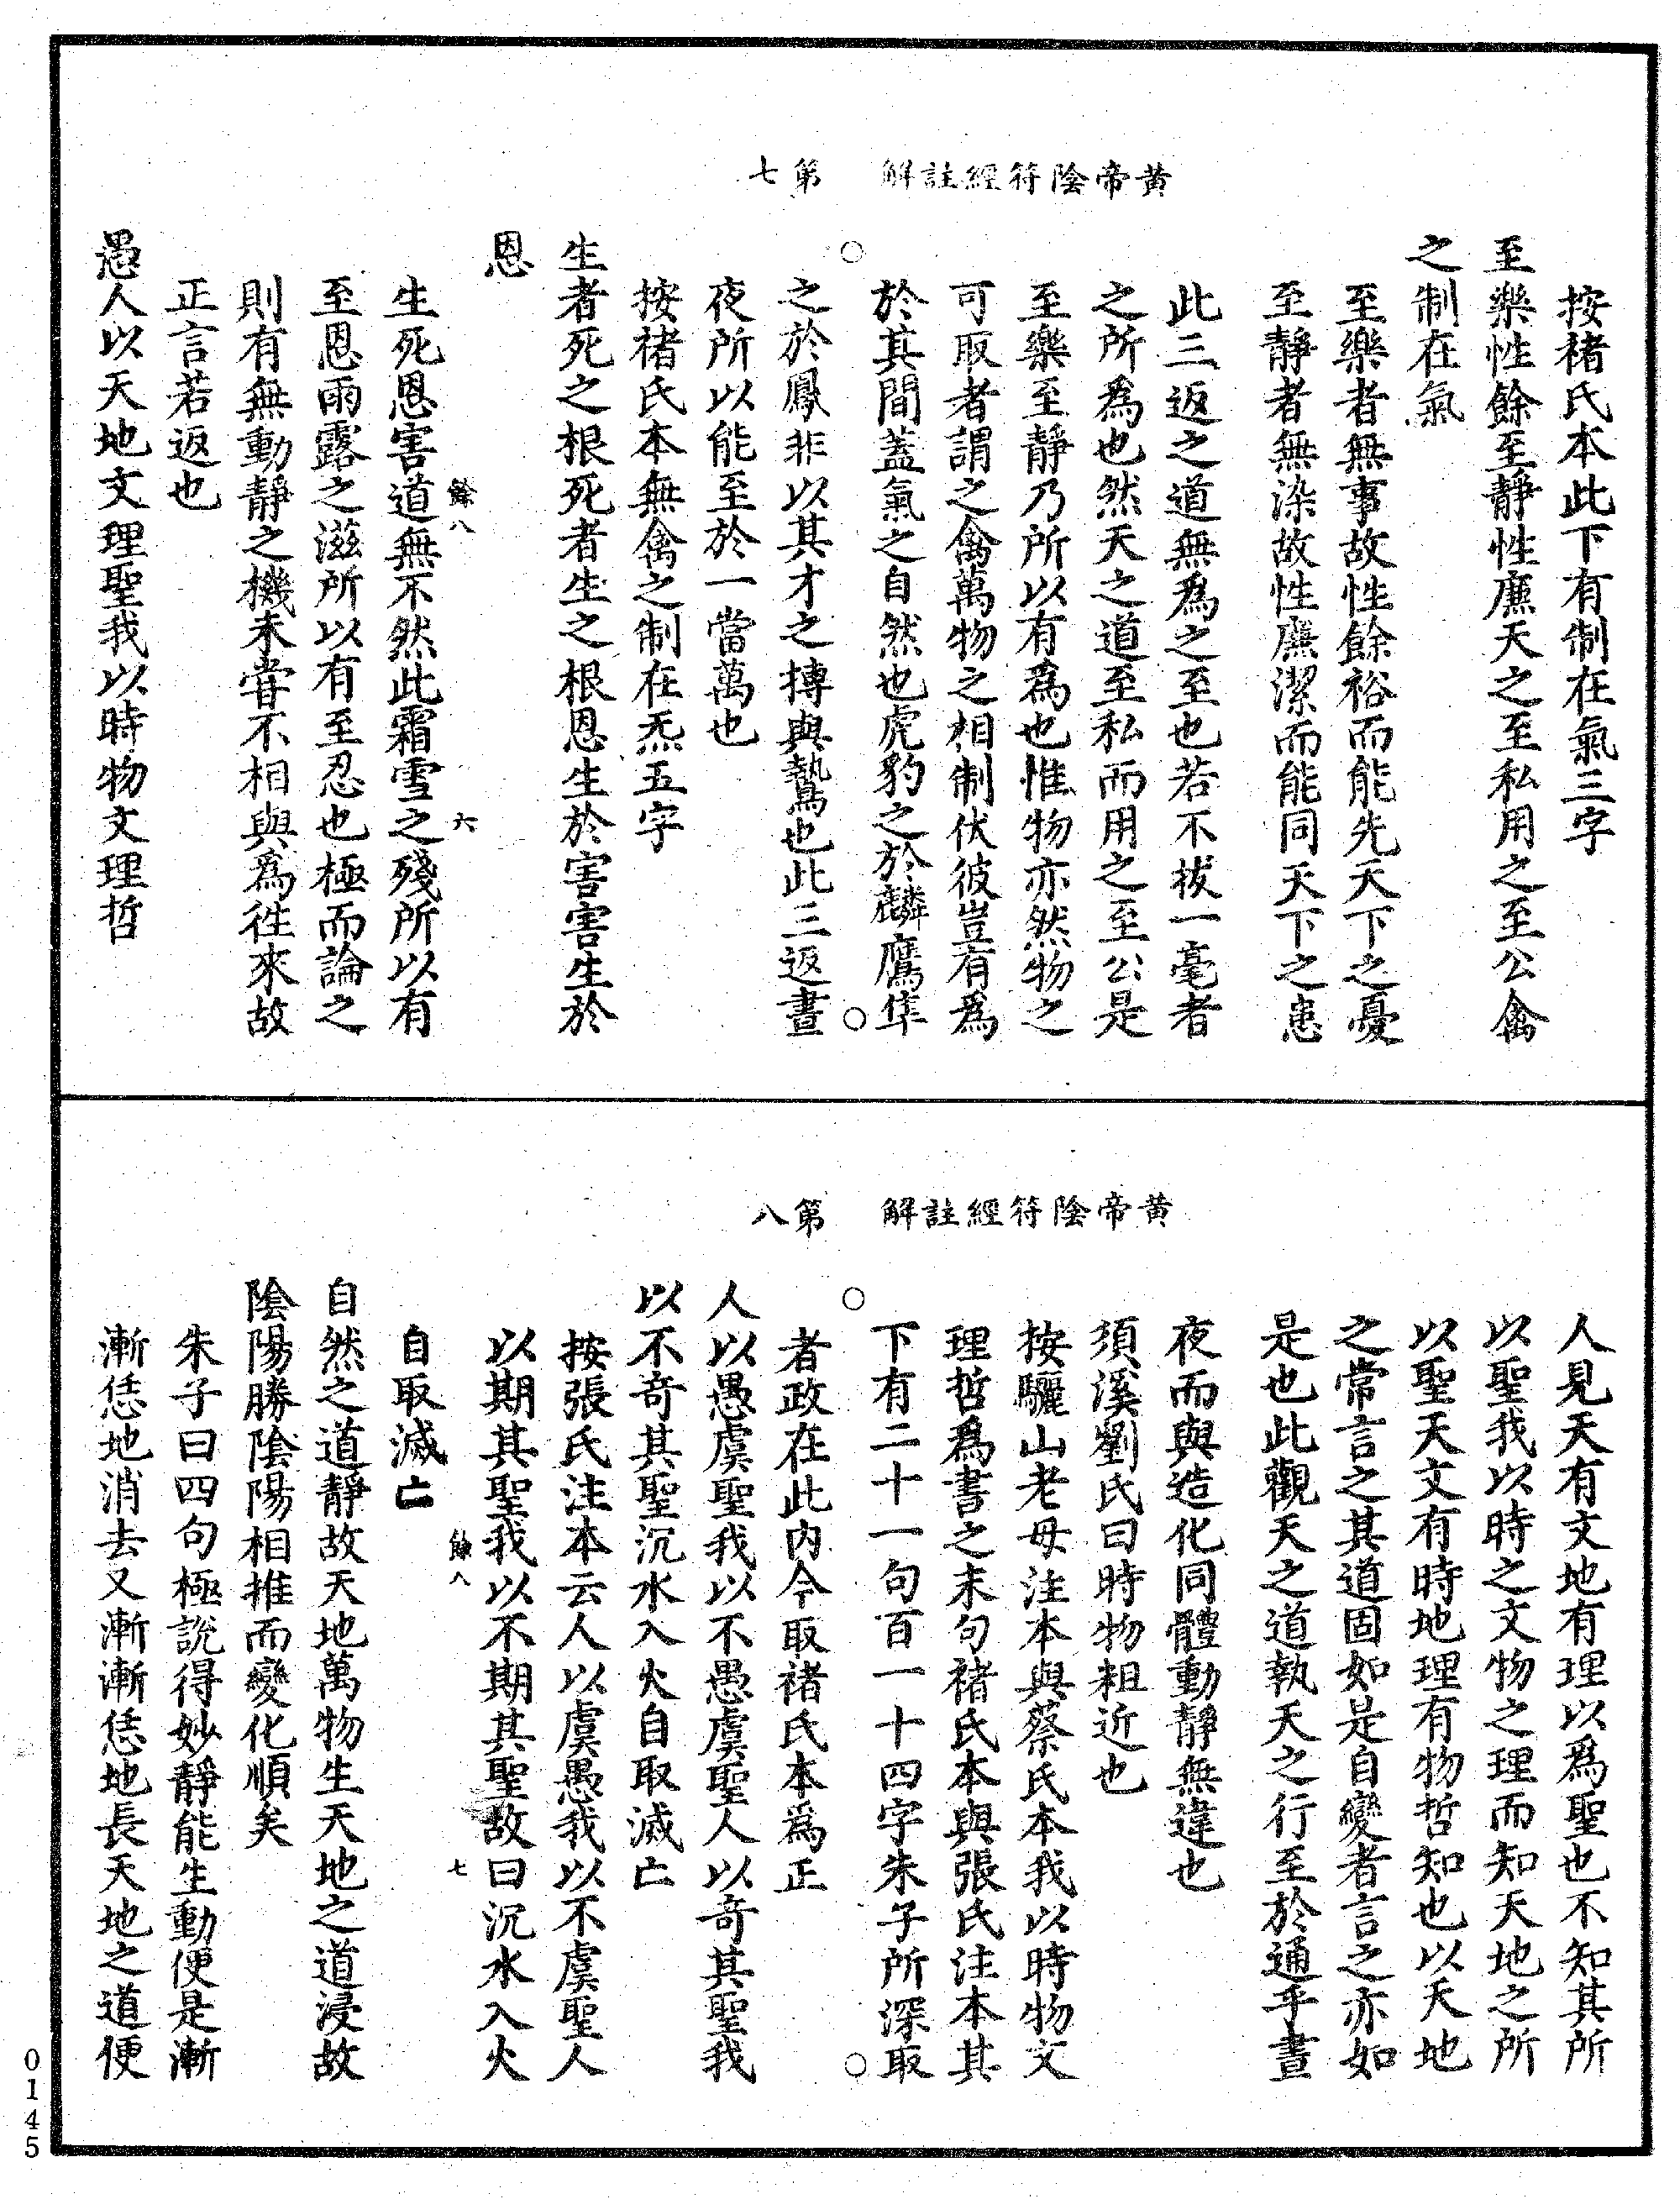 黃帝陰符經註解　第七
按褚氏本此下有制在氣三字
至樂性餘至靜性廉天之至私用之至公禽
之制在氣
至樂者無事故性餘裕而能先天下之憂
至靜者無染故性廉潔而能同天下之患
此三返之道無爲之至也若不拔一毫者
之所爲也然天之道至私而用之至公是
至樂至靜乃所以有爲也惟物亦然物之
可取者謂之禽萬物之相制伏彼豈有爲
於其間蓋氣之自然也虎豹之於麟鷹隼
○　○
之於鳳非以其才之搏與鷙也此三返晝
夜所以能至於一當萬也
按褚氏本無禽之制在炁五字
生者死之根死者生之根恩生於害害生於
恩
餘八　六
生死恩害道無不然此霜雪之殘所以有
至恩雨露之滋所以有至忍也極而論之
則有無動靜之機未嘗不相與爲徃來故
正言若返也
愚人以天地文理聖我以時物文理哲
黃帝陰符經註解　第八
人見天有文地有理以爲聖也不知其所
以聖我以時之文物之理而知天地之所
以聖天文有時地理有物哲知也以天地
之常言之其道固如是自變者言之亦如
是也此觀天之道執天之行至於通乎晝
夜而與造化同體動靜無違也
須溪劉氏曰時物粗近也
按驪山老母注本與蔡氏本我以時物文
理哲爲書之末句褚氏本與張氏注本其
下有二十一句百一十四字朱子所深取
○　○
者政在此內今取褚氏本爲正
人以愚虞聖我以不愚虞聖人以奇其聖我
以不奇其聖沉水入火自取滅亡
按張氏注本云人以虞愚我以不虞聖人
以期其聖我以不期其聖故曰沉水入火
餘八　七
自取滅亡
自然之道靜故天地萬物生天地之道浸故
陰陽勝陰陽相推而變化順矣
朱子曰四句極說得妙靜能生動便是漸
漸恁地消去又漸漸恁地長天地之道便
0145